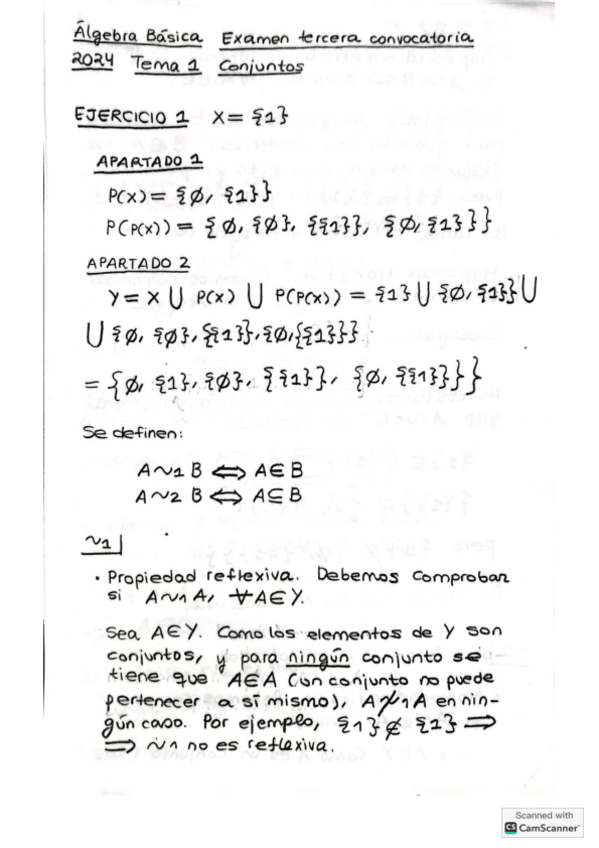 Álgebra Básica Examen tercera convocatoria
2024 Tema 1 Conjuntos
EJERCICIO 1 X = {1}
APARTADO 1
P(X) = {∅, {1}}
P(P(X)) = {∅, {∅}, {{1}}, {∅, {1}}}
APARTADO 2
Y = X ⋃ P(X) ⋃ P(P(X)) = {1} ⋃ {∅, {1}} ⋃
⋃ {∅, {∅}, {{1}}, {∅, {{1}}}
= {∅, {1}, {∅}, {{1}}, {∅, {{1}}}}
Se definen:
A ~1 B ⟺ A ∈ B
A ~2 B ⟺ A ⊆ B
~1
• Propiedad reflexiva. Debemos comprobar
si A ~1 A, ∀A ∈ Y.
Sea A ∈ Y. Como los elementos de Y son
conjuntos, y para ningún conjunto se
tiene que A ∈ A (un conjunto no puede
pertenecer a sí mismo), A ≁1 A en nin-
gún caso. Por ejemplo, {1} ∉ {1} ⟹
⟹ ~1 no es reflexiva.
Scanned with
CS CamScanner